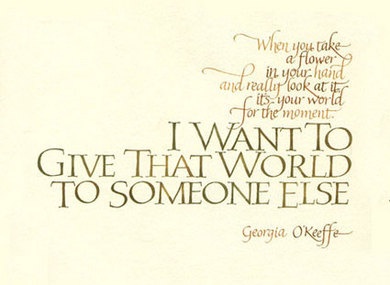 When you take
a flower
in your hand
and really look at it,
it's your world
for the moment.
I WANT TO
GIVE THAT WORLD
TO SOMEONE ELSE
Georgia O'Keeffe